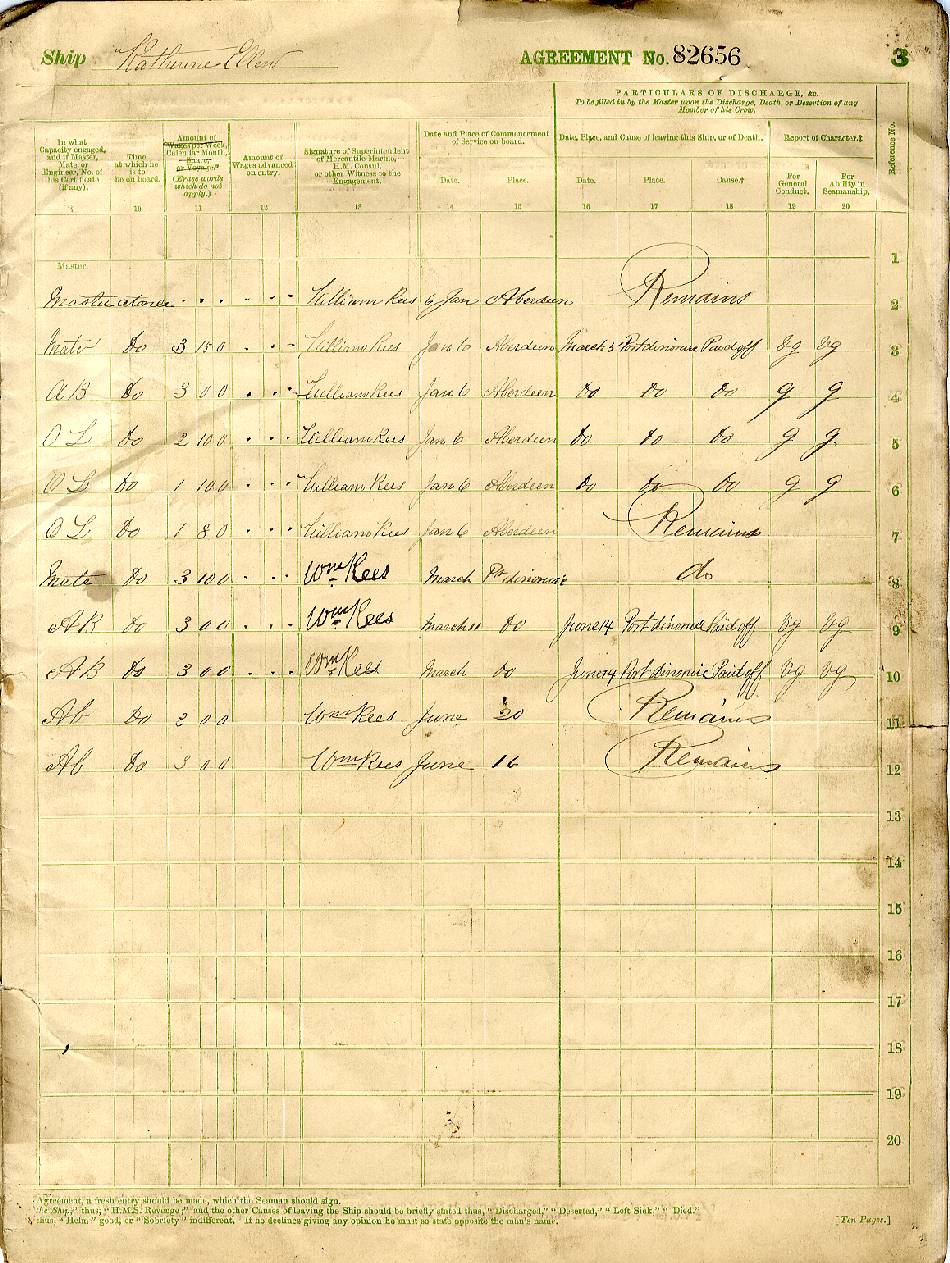 Ship "Katherine Ellen"
AGREEMENT No. 82656 3
PARTICULARS OF DISCHARGE, &c.
To be filled in by the Master upon the Discharge, Death, or Desertion of any Member of his Crew.
In what Capacity engaged, and if Master, Mate or Engineer, No. of his Certificate (if any).
Time at which he is to be on board.
Amount of Wages per Week, Calendar Month, Share, or Voyage. (Erase words which do not apply.)
Amount of Wages advanced on entry.
Signature of Superintendent of Mercantile Marine, H.M. Consul, or other Witness to the Engagement.
Date and Place of Commencement of Service on board.
Date. Place.
Date, Place, and Cause of leaving this Ship, or of Death.
Date. Place. Cause.†
Report of Character.‡
For General Conduct. For Ability in Seamanship.
Reference No.
9 10 11 12 13 14 15 16 17 18 19 20
Master 1
Master atonce William Rees 6 Jan Aberdeen Remains 2
Mate Do 3 15 0 William Rees Jan 6 Aberdeen March Portdinorwic Paid off Vg Vg 3
A B Do 3 0 0 William Rees Jan 6 Aberdeen Do Do Do g g 4
O S Do 2 10 0 William Rees Jan 6 Aberdeen Do Do Do g g 5
O S Do 1 10 0 William Rees Jan 6 Aberdeen Do Do Do g g 6
O S Do 1 8 0 William Rees Jan 6 Aberdeen Remains 7
Mate Do 3 10 0 Wm Rees March Pt dinorwic do 8
A B Do 3 0 0 Wm Rees March Do June 14 Port dinorwic Paid off Vg Vg 9
A B Do 3 0 0 Wm Rees March Do June 14 Port dinorwic Paid off Vg Vg 10
Ab Do 2 0 0 Wm Rees June 20 Remains 11
Ab Do 3 0 0 Wm Rees June 16 Remains 12
13
14
15
16
17
18
19
20
Agreement, a fresh entry should be made, which the Seaman should sign.
the Ship," thus; "H.M.S. Revenge;" and the other Causes of leaving the Ship should be briefly stated thus, "Discharged," "Deserted," "Left Sick," "Died."
thus, "Helm" good, or "Sobriety" indifferent. If he declines giving any opinion he must so state opposite the man's name.
[Ten Pages.]